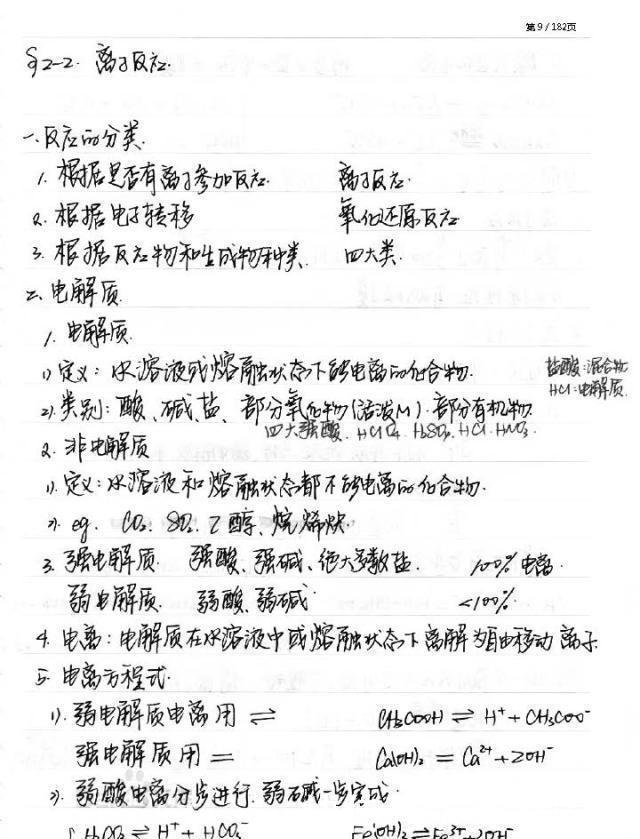 第9/182页
§2-2. 离子反应.
一.反应的分类.
1. 根据是否有离子参加反应. 离子反应.
2. 根据电子转移 氧化还原反应
3. 根据反应物和生成物种类. 四大类.
二、电解质.
1. 电解质.
1) 定义: 水溶液或熔融状态下能电离的化合物.
盐酸:混合物
HCl:电解质.
2). 类别: 酸、碱、盐、部分氧化物(活泼M). 部分有机物.
四大强酸. HClO4. H2SO4. HCl. HNO3.
2. 非电解质
1). 定义: 水溶液和熔融状态都不能电离的化合物.
2). eg. CO2. SO2. 乙醇、烷烯炔.
3. 强电解质 强酸、强碱、绝大多数盐. 100% 电离.
弱电解质. 弱酸、弱碱. <100%.
4. 电离: 电解质在水溶液中或熔融状态下离解为自由移动离子.
5. 电离方程式.
1). 弱电解质电离用 ⇌ CH3COOH ⇌ H⁺ + CH3COO⁻
强电解质用 = Ca(OH)2 = Ca²⁺ + 2OH⁻
2). 弱酸电离分步进行. 弱碱一步完成.
H2CO3 ⇌ H⁺ + HCO3⁻